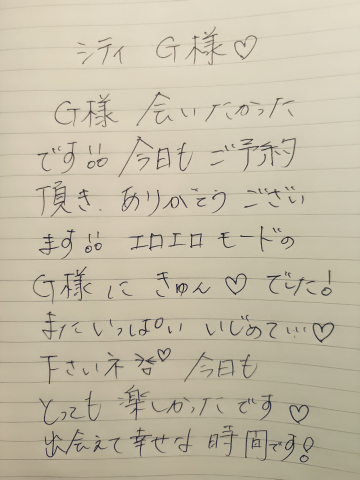 シティ G様♡
G様 会いたかった
です!! 今日も ご予約
頂き、ありがとう ござい
ます!! エロエロ モードの
G様に きゅん♡でした!
またいっぱい いじめて…♡
下さいネ 今日も
とっても 楽しかったです♡
出会えて幸せな 時間です!